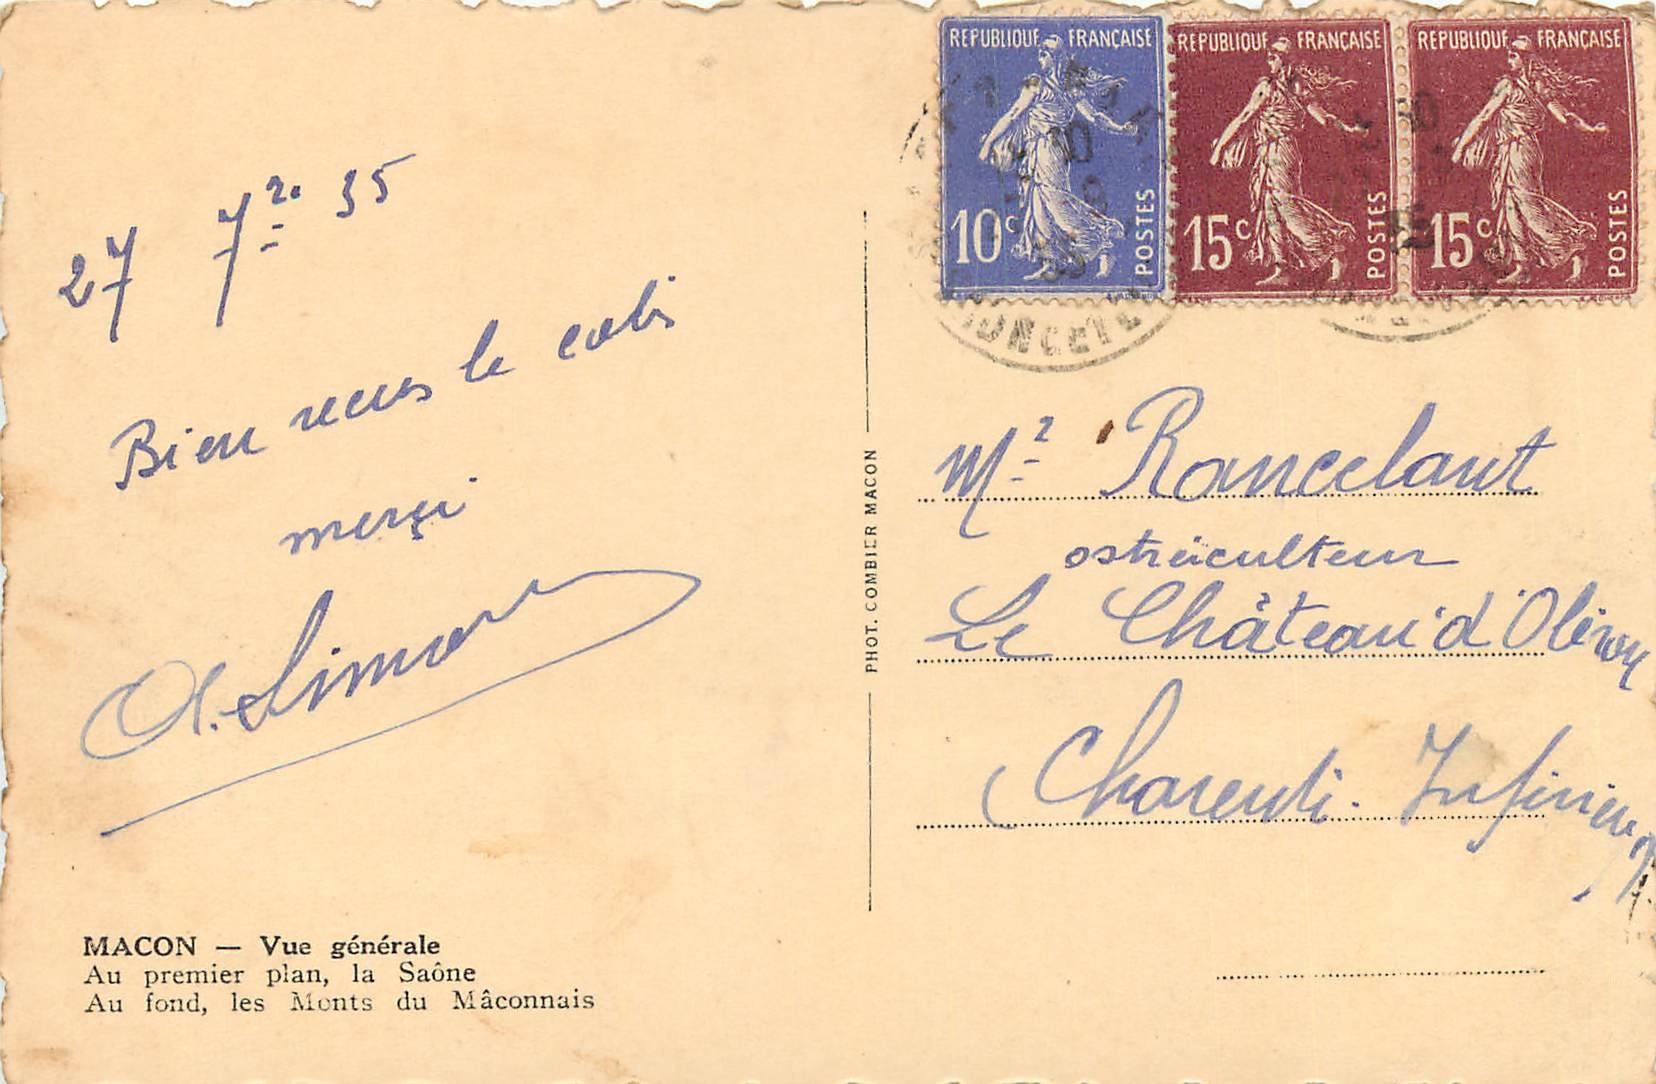 27 7re 35
Bien recus le colis
merçi
MACON — Vue générale
Au premier plan, la Saône
Au fond, les Monts du Mâconnais
PHOT. COMBIER MACON
REPUBLIQUE FRANÇAISE
10c POSTES
REPUBLIQUE FRANÇAISE
15c POSTES
REPUBLIQUE FRANÇAISE
15c POSTES
Mr Rancelant
ostréiculteur
Le Château d'Oléron
Charente Inférieure